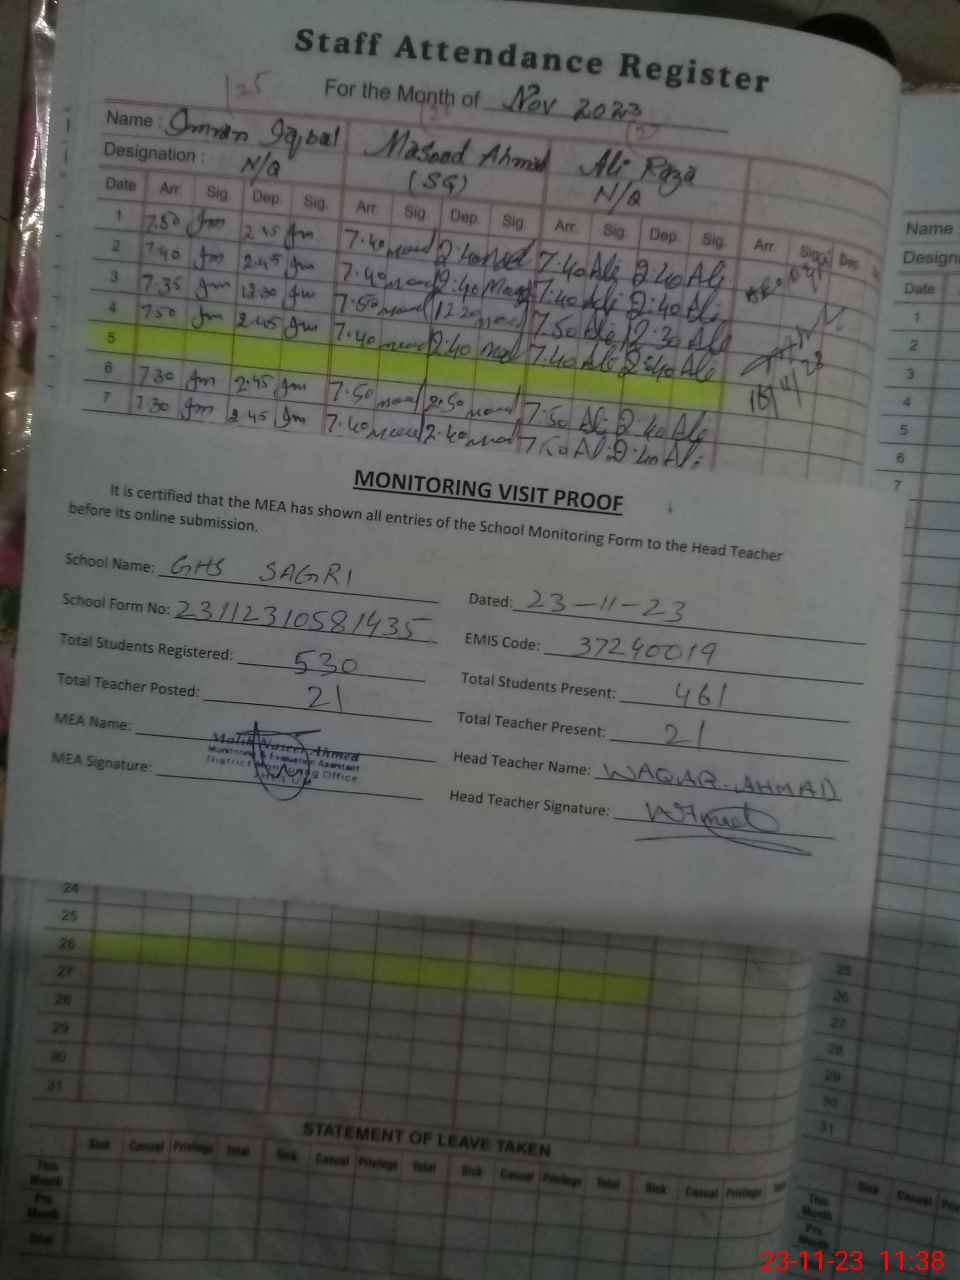 Staff Attendance Register
For the Month of Nov 2023
Name : Imran Iqbal Masood Ahmed Ali Raza
Designation : N/Q (SG) N/Q
Date Arr. Sig. Dep. Sig. Arr. Sig. Dep. Sig. Arr. Sig. Dep. Sig. Arr. Sig. Dep.
1 7.50 2.45 7.40 2.40 7.40 Ali 2.40 Ali
2 7.40 2.45 7.40 2.40 7.40 Ali 2.40 Ali
3 7.35 12.30 7.50 12.20 7.50 Ali 12.30 Ali
4 7.50 2.45 7.40 2.40 7.40 Ali 2.40 Ali
5
6 7.30 2.45 7.50 2.50 7.50 Ali 2.40 Ali
7 7.30 2.45 7.40 2.40 7.50 Ali 2.40 Ali
MONITORING VISIT PROOF
It is certified that the MEA has shown all entries of the School Monitoring Form to the Head Teacher
before its online submission.
School Name: GHS SAGRI
Dated: 23-11-23
School Form No: 23112310581435
EMIS Code: 37240019
Total Students Registered: 530
Total Students Present: 461
Total Teacher Posted: 21
Total Teacher Present: 21
MEA Name: Malik Naseer Ahmed
Monitoring & Evaluation Assistant
District Monitoring Office
MEA Signature:
Head Teacher Name: WAQAR. AHMAD
Head Teacher Signature: WAhmad
24
25
26
27
28
29
30
31
STATEMENT OF LEAVE TAKEN
Sick Casual Privilege Total Sick Casual Privilege Total Sick Casual Privilege Total Sick Casual Privilege
This Month
Pre. Month
Total
Name
Design
Date
1
2
3
4
5
6
7
25
26
27
28
29
30
31
Sick Casual
This Month
Pre. Month
Total
23-11-23 11:38